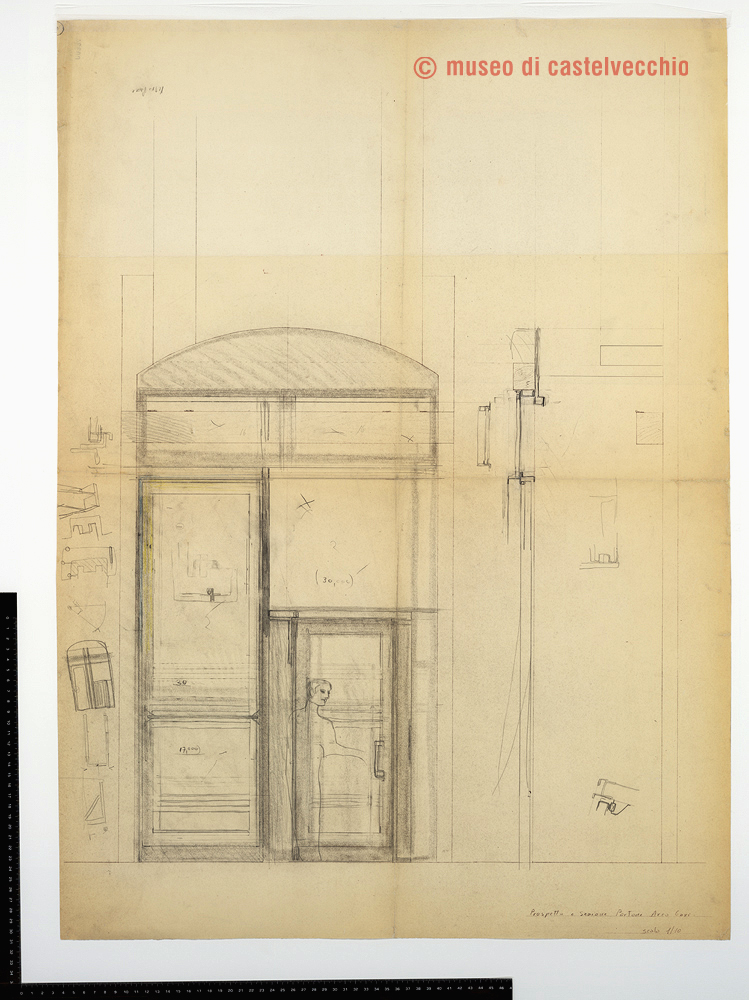 © museo di castelvecchio
(30,000)
(17,000)
Prospetto e sezione Portone Arco Gavi
scala 1/10